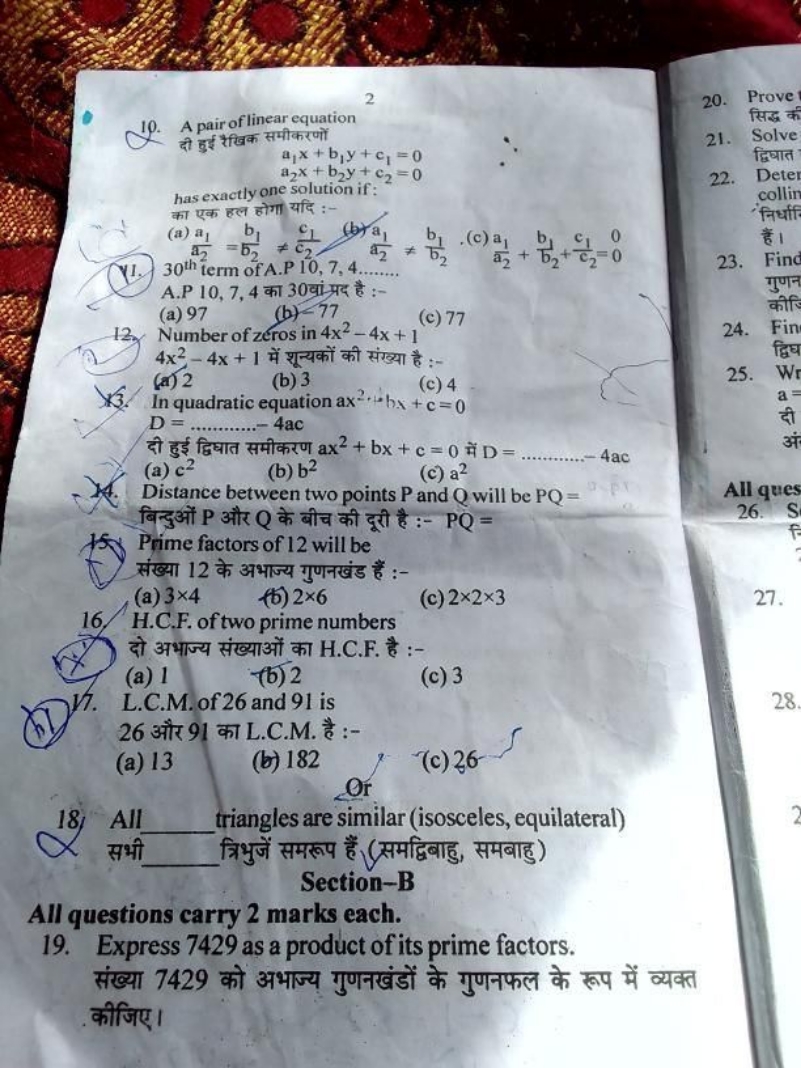 2
10. A pair of linear equation
दी हुई रैखिक समीकरणों
a₁x + b₁y + c₁ = 0
a₂x + b₂y + c₂ = 0
has exactly one solution if :
का एक हल होगा यदि :-
(a) a₁/a₂ = b₁/b₂ ≠ c₁/c₂ (b) a₁/a₂ ≠ b₁/b₂ .(c) a₁/a₂ + b₁/b₂ + c₁/c₂ = 0/0
11. 30th term of A.P 10, 7, 4........
A.P 10, 7, 4 का 30वां पद है :-
(a) 97 (b) – 77 (c) 77
12. Number of zeros in 4x² – 4x + 1
4x² – 4x + 1 में शून्यकों की संख्या है :-
(a) 2 (b) 3 (c) 4
13. In quadratic equation ax² + bx + c = 0
D = ............– 4ac
दी हुई द्विघात समीकरण ax² + bx + c = 0 में D = ............– 4ac
(a) c² (b) b² (c) a²
14. Distance between two points P and Q will be PQ =
बिन्दुओं P और Q के बीच की दूरी है :- PQ =
15. Prime factors of 12 will be
संख्या 12 के अभाज्य गुणनखंड हैं :-
(a) 3×4 (b) 2×6 (c) 2×2×3
16. H.C.F. of two prime numbers
दो अभाज्य संख्याओं का H.C.F. है :-
(a) 1 (b) 2 (c) 3
17. L.C.M. of 26 and 91 is
26 और 91 का L.C.M. है :-
(a) 13 (b) 182 (c) 26
Or
18. All______triangles are similar (isosceles, equilateral)
सभी______त्रिभुजें समरूप हैं (समद्विबाहु, समबाहु)
Section–B
All questions carry 2 marks each.
19. Express 7429 as a product of its prime factors.
संख्या 7429 को अभाज्य गुणनखंडों के गुणनफल के रूप में व्यक्त
कीजिए।
20. Prove
सिद्ध
21. Solve
द्विघात
22. Deter
collin
निर्धारि
हैं।
23. Find
गुणन
कीजि
24. Fin
द्विघ
25. Wr
a =
दी
अं
All ques
26. S
27.
28.
2